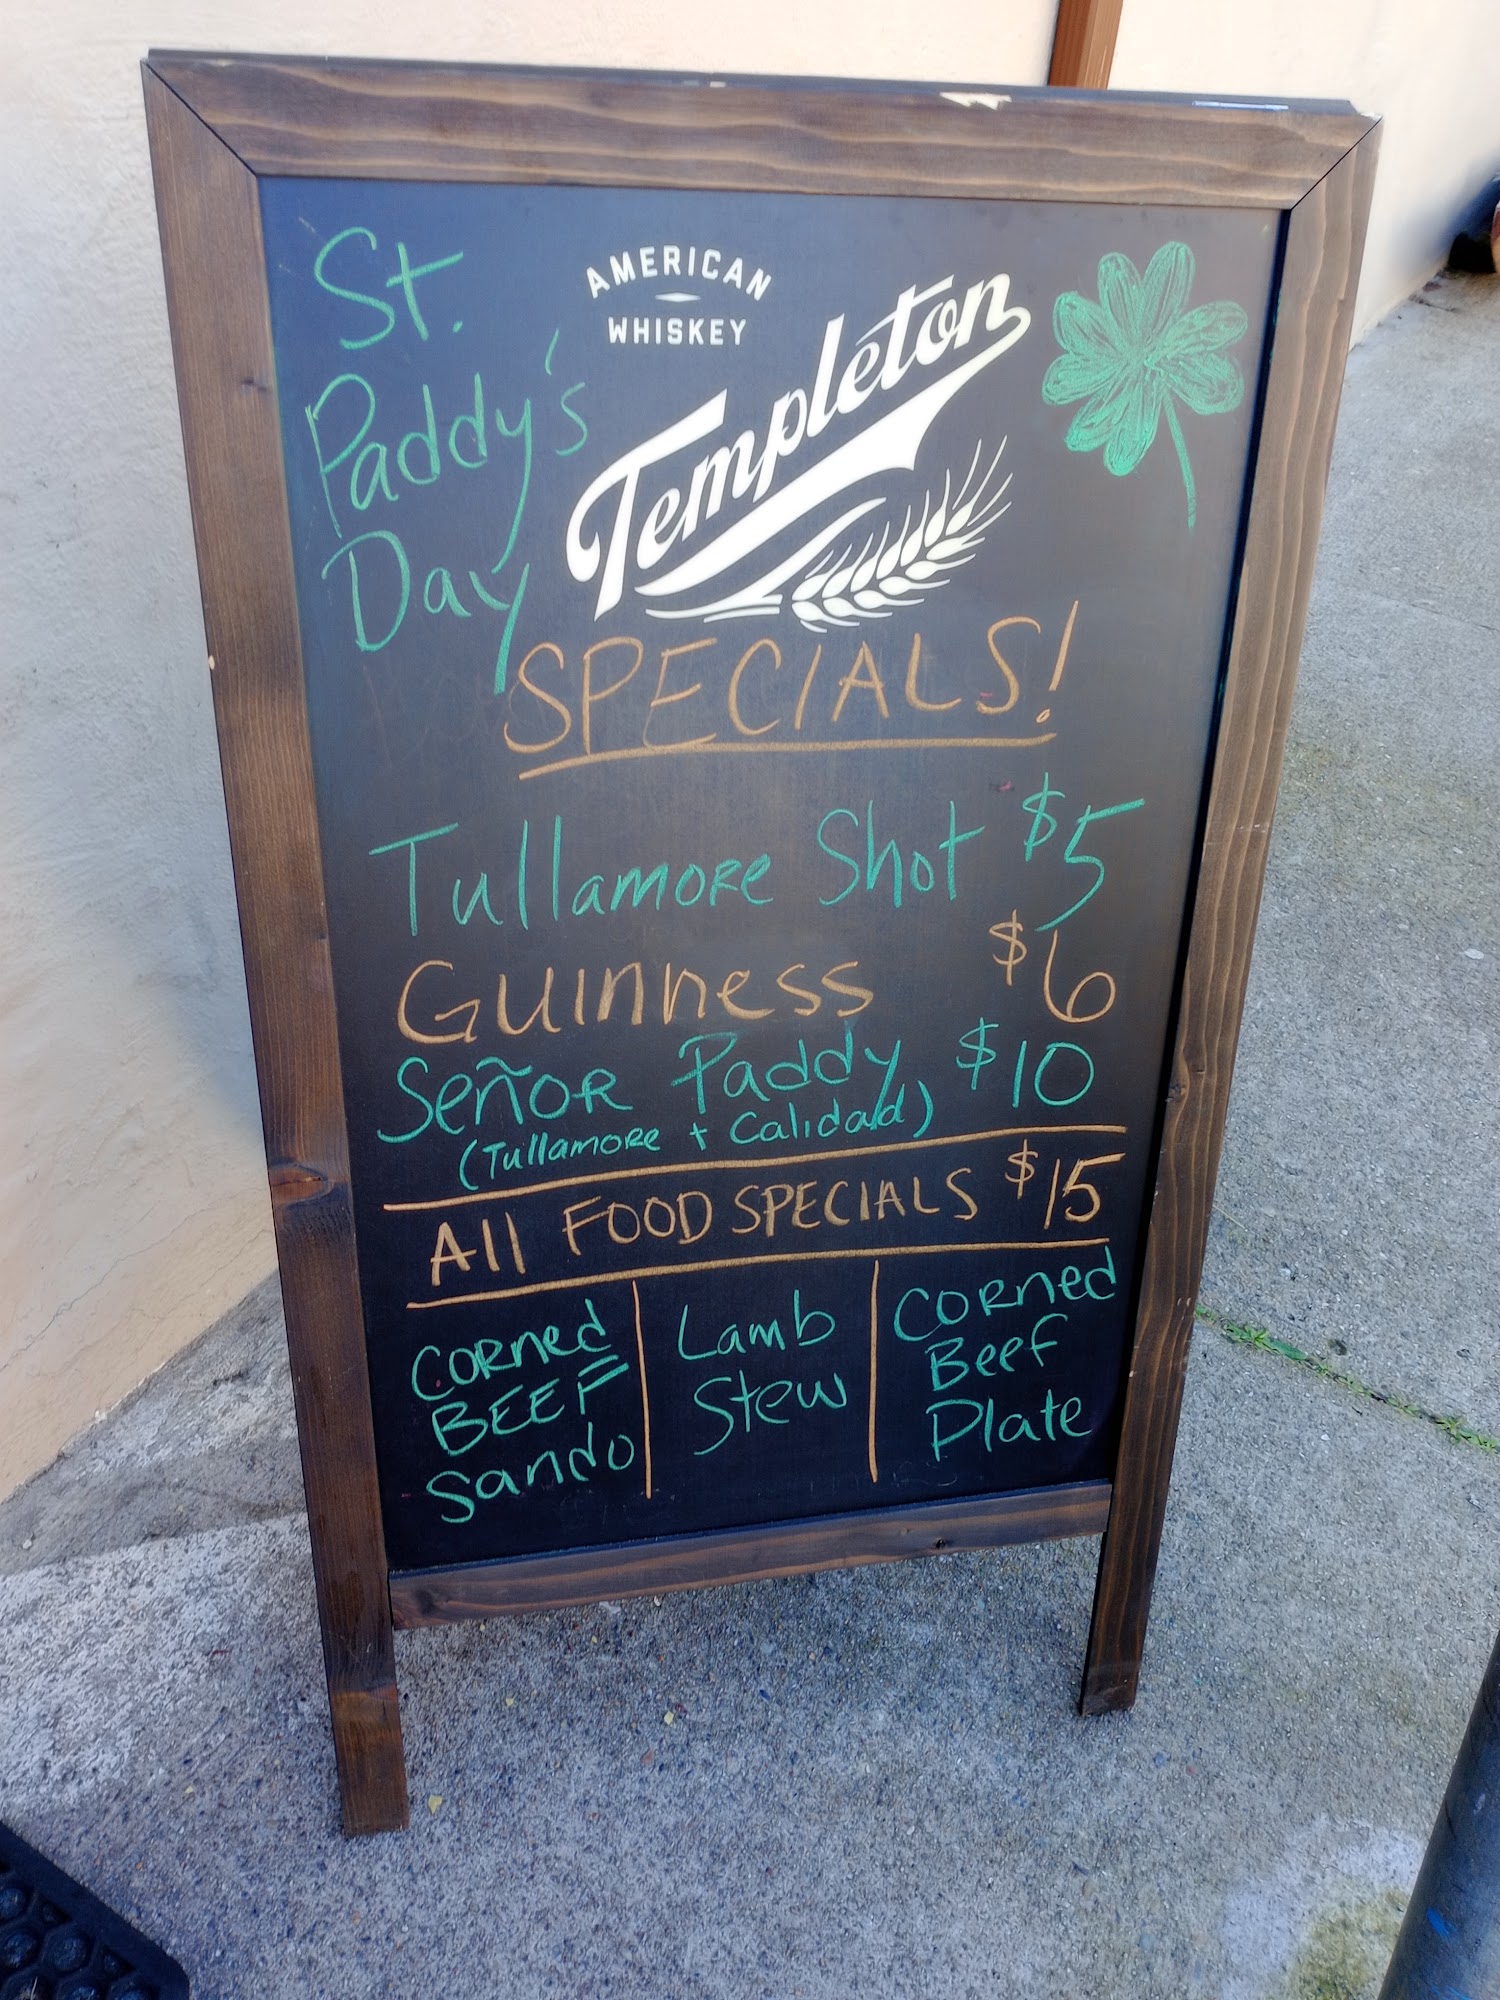 St.
Paddy's
Day
AMERICAN
WHISKEY
Templeton
SPECIALS!
Tullamore Shot $5
Guinness $6
Señor Paddy $10
(Tullamore + Calidad)
All FOOD SPECIALS $15
Corned
BEEF
Sando
Lamb
Stew
Corned
Beef
Plate